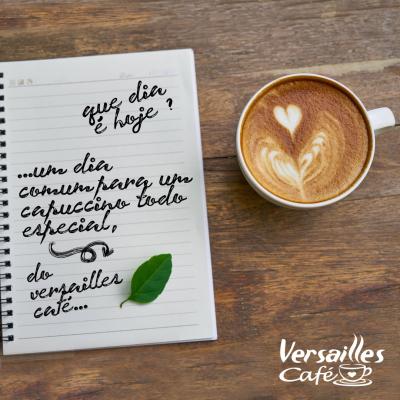 que dia
é hoje ?
...um dia
comum para um
capuccino todo
especial,
do
versailles
café...
Versailles
Café